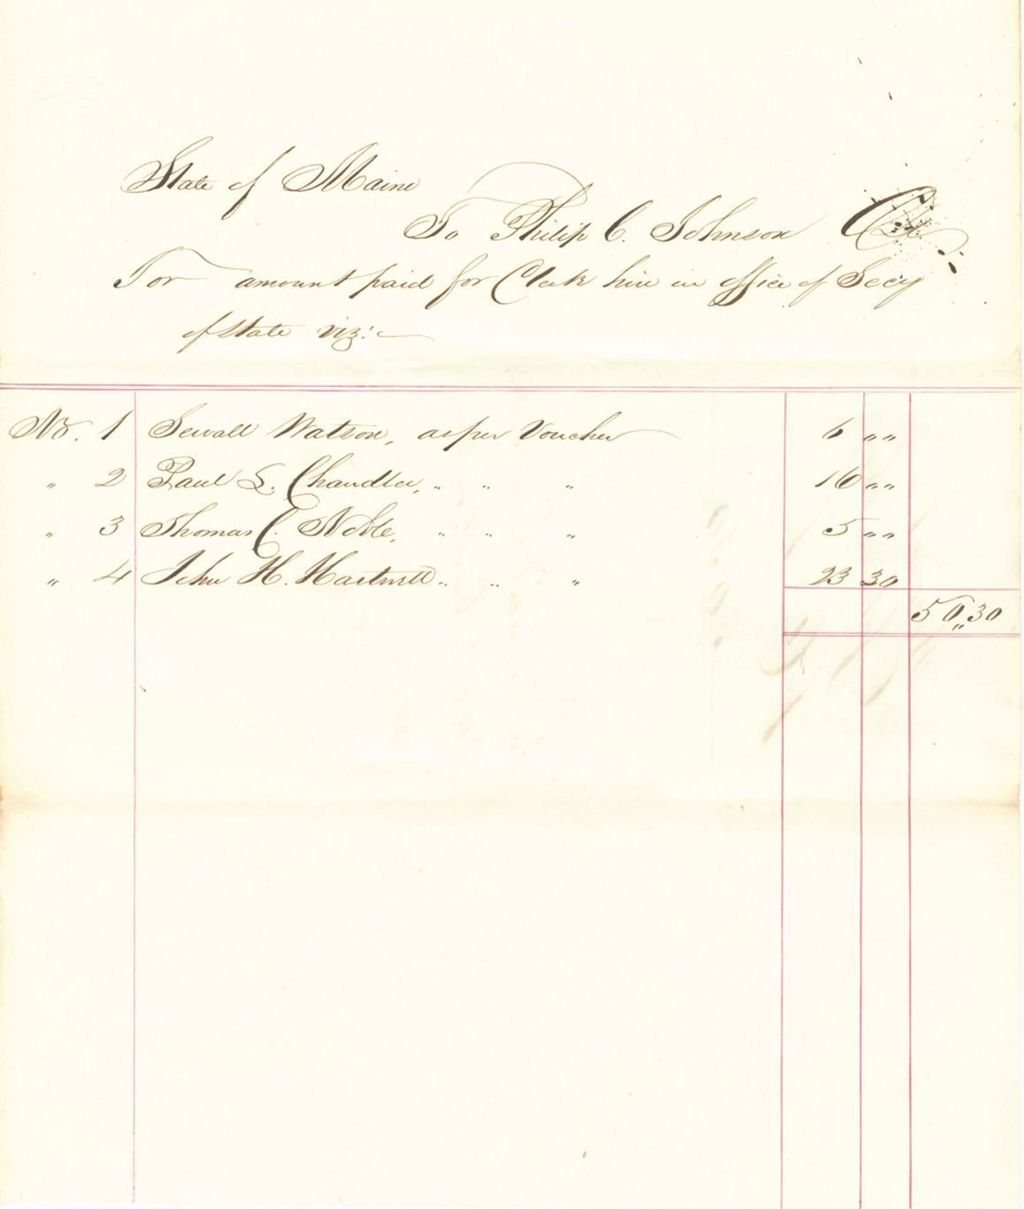 State of Maine
To Philip C. Johnson
For amount paid for Clerk hire in office of Secy
of State viz:
No. 1 Sewall Watson, as per Voucher 6 „„
„ 2 Paul L. Chandler, „ „ „ 16 „„
„ 3 Thomas C. Noble, „ „ „ 5 „„
„ 4 John H. Hartwell „ „ „ 23 30
50„30